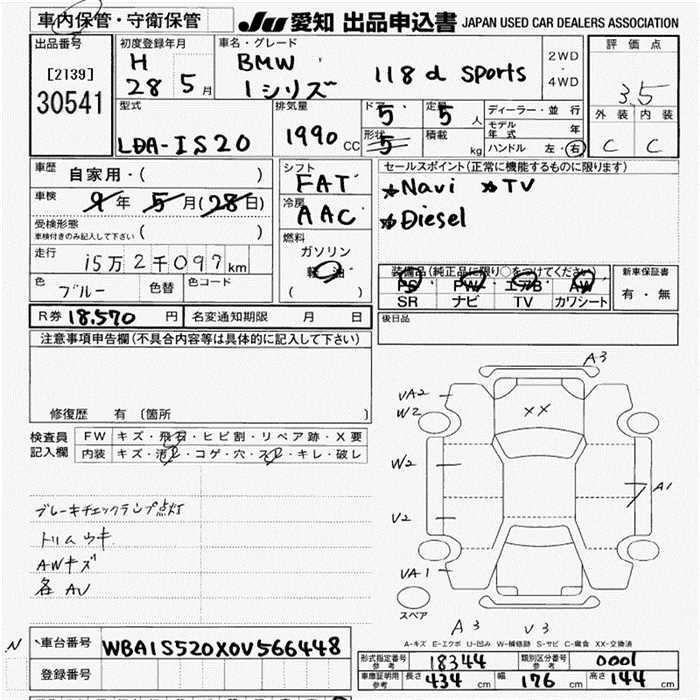 車内保管・守衛保管
JU 愛知 出品申込書 JAPAN USED CAR DEALERS ASSOCIATION
出品番号
[2139]
30541
初度登録年月
H
28 5 月
車名・グレード
BMW
1シリズ 118d sports
2WD
・
4WD
評価点
3.5
外装 内装
C C
型式
LDA-1S20
排気量
1990 CC
ドア
5
定員
5 人
形状
5
積載
kg
ディーラー・並行
モデル年式 年
ハンドル 左・右
車歴
自家用・( )
車検
9年 5月(28日)
受検形態
車検付きのみ記入して下さい ( )
走行
15万2千097 km
色
ブルー
色替
色コード
シフト
FAT
冷房
AAC
燃料
ガソリン
軽油
( )
セールスポイント(正常に機能するものに限ります)
★Navi ★TV
★Diesel
装備品(純正品に限り○をつけてください)
PS PW エアB AW
SR ナビ TV カワシート
新車保証書
有・無
R券 18.570 円
名変通知期限 月 日
後日品
注意事項申告欄(不具合内容等は具体的に記入して下さい)
修復歴 有 〔箇所 〕
検査員
記入欄
FW キズ・飛石・ヒビ割・リペア跡・X要
内装 キズ・汚レ・コゲ・穴・スレ・キレ・破レ
ブレーキチェックランプ点灯
トリムウキ
AWキズ
各AU
A3
UA2
W2
XX
W2
U2
A1
UA1
スペア
A3 U3
A-キズ E-エクボ U-凹み W-補修跡 S-サビ C-腐食 XX-交換済
N
車台番号 WBA1S520X0V566448
登録番号
形式指定番号
参考
18344
類別区分番号
参考
0001
車庫証明用
参考
長さ 434 cm 幅 176 cm 高さ 144 cm